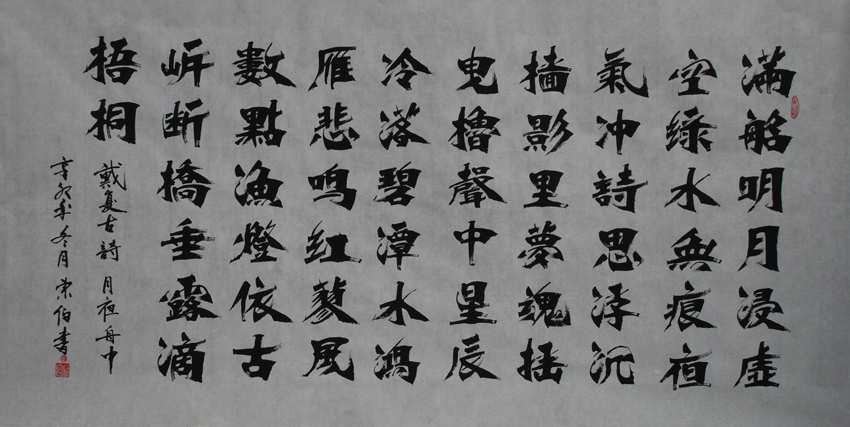 滿船明月浸虛
空綠水無痕夜
氣冲詩思浮沉
檣影里夢魂摇
曳櫓聲中星辰
冷落碧潭水鴻
雁悲鳴紅蓼風
數點漁燈依古
岸断橋垂露滴
梧桐
戴复古詩 月夜舟中
辛卯年冬月 荣伯書